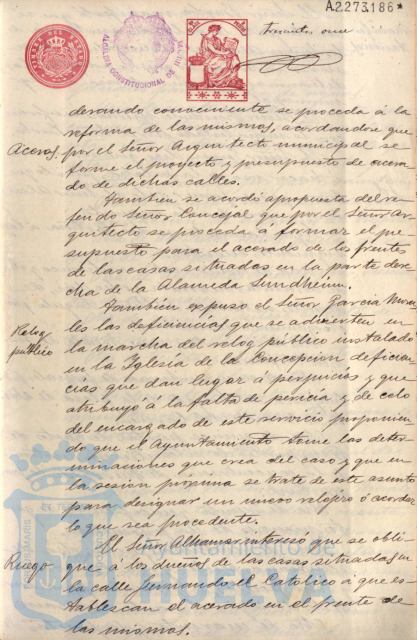 A2.273.186*
trescientos once
TIMBRE DEL ESTADO
ALCALDIA CONSTITUCIONAL DE HUELVA
derando conveniente se proceda á la
reforma de las mismas, acordandose que
Aceras. por el Señor Arquitecto municipal se
forme el proyecto y presupuesto de acera-
do de dichas calles.
Tambien se acordó a propuesta del re-
ferido Señor Concejal que por el Señor Ar-
quitecto se proceda á formar el pre-
supuesto para el acerado de los frentes
de las casas situadas en la parte dere-
cha de la Alameda Sundheim.
Tambien expuso el Señor Garcia Mora-
Relog les las deficiencias que se advierten en
público la marcha del relog público instalado
en la Iglesia de la Concepcion deficien-
cias que dan lugar á perjuicios y que
atribuyó á la falta de pericia y de celo
del encargado de este servicio proponien-
do que el Ayuntamiento tome las deter-
minaciones que crea del caso y que en
la sesion proxima se trate de este asunto
para designar un nuevo relojero ó acordar
lo que sea procedente.
Ruego El Señor Alhamar interesó que se obli-
gue á los dueños de las casas situadas en
la calle Fernando el Catolico á que es-
tablezcan el acerado en el frente de
las mismas.
Ayuntamiento de
HUELVA